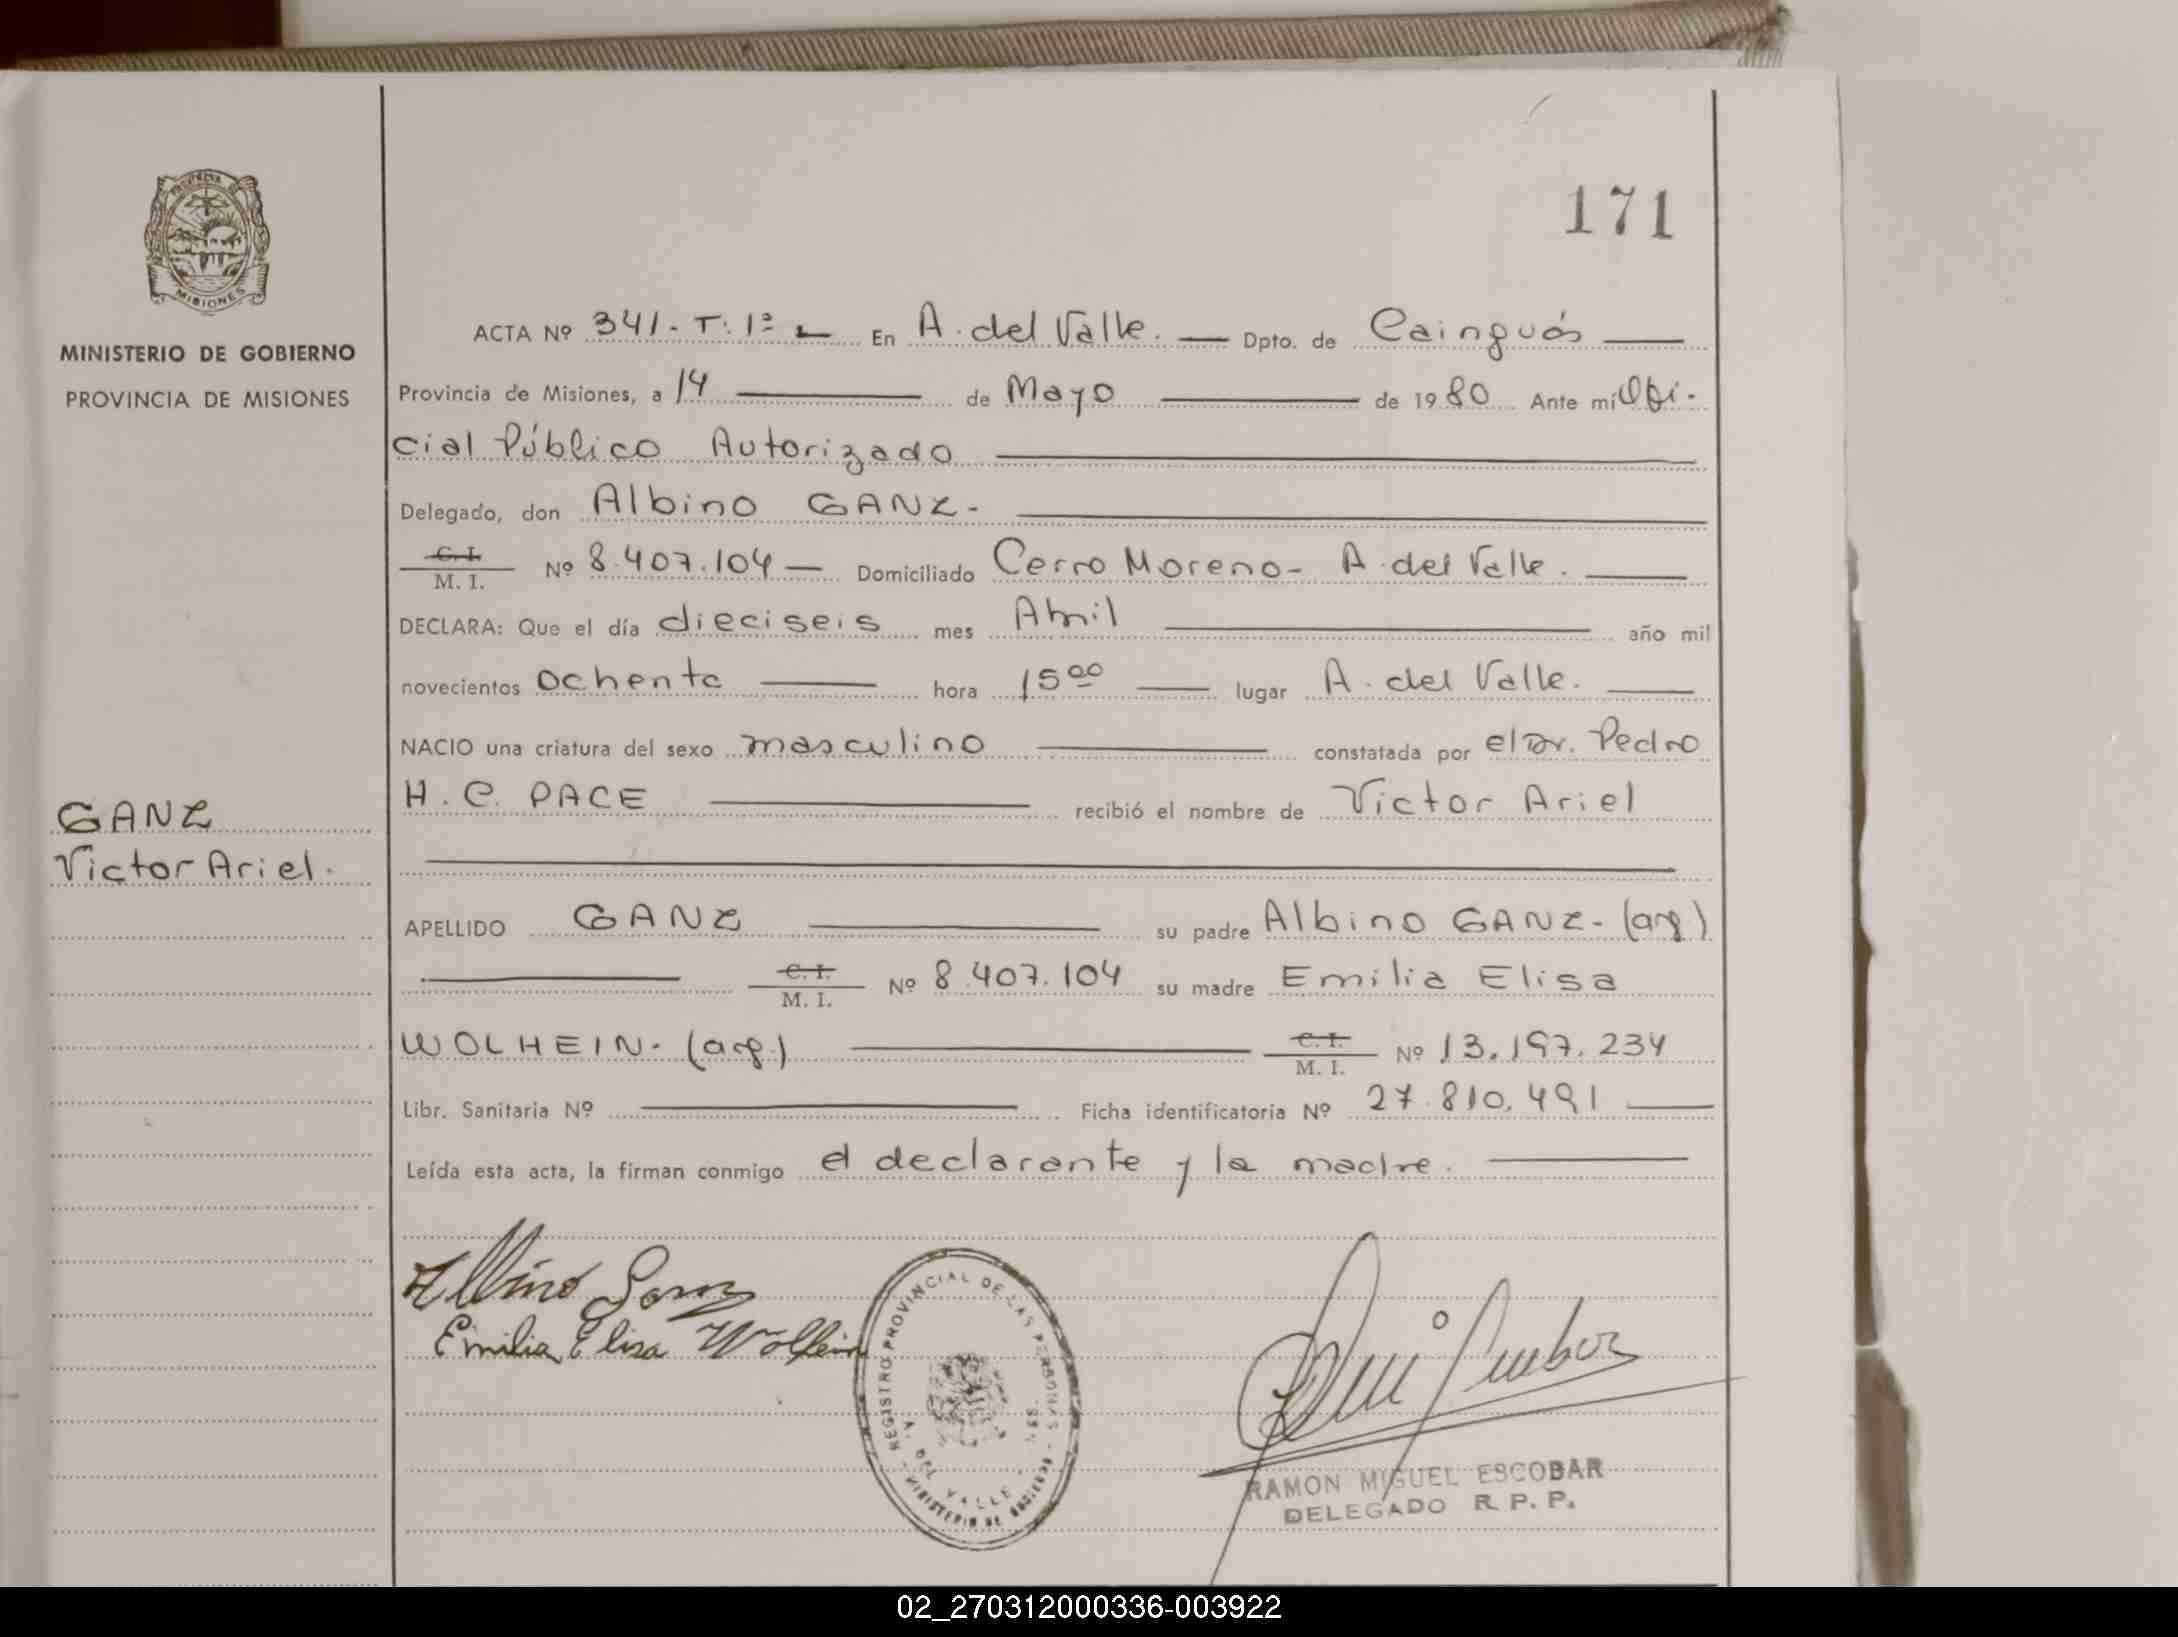 171
PROVINCIA DE
MISIONES
MINISTERIO DE GOBIERNO
PROVINCIA DE MISIONES
ACTA Nº 341. T: 1º En A. del Valle. Dpto. de Cainguás
Provincia de Misiones, a 14 de Mayo de 1980 Ante mí Ofi-
cial Público Autorizado
Delegado, don Albino GANZ.
C. I. / M. I. Nº 8.407.104 Domiciliado Cerro Moreno - A. del Valle.
DECLARA: Que el día dieciseis mes Abril año mil
novecientos ochenta hora 15 00 lugar A. del Valle.
NACIO una criatura del sexo masculino constatada por el Dr. Pedro
H. C. PACE recibió el nombre de Victor Ariel
GANZ
Victor Ariel.
APELLIDO GANZ su padre Albino GANZ - (arg)
C. I. / M. I. Nº 8.407.104 su madre Emilia Elisa
WOLHEIN. (arg.) C. I. / M. I. Nº 13.197.234
Libr. Sanitaria Nº Ficha identificatoria Nº 27.810.491
Leída esta acta, la firman conmigo el declarante y la madre.
Albino Ganz
Emilia Elisa Wolhein
REGISTRO PROVINCIAL DE LAS PERSONAS
A. DEL VALLE
MINISTERIO DE GOBIERNO
RAMON MIGUEL ESCOBAR
DELEGADO R. P. P.
02_270312000336-003922